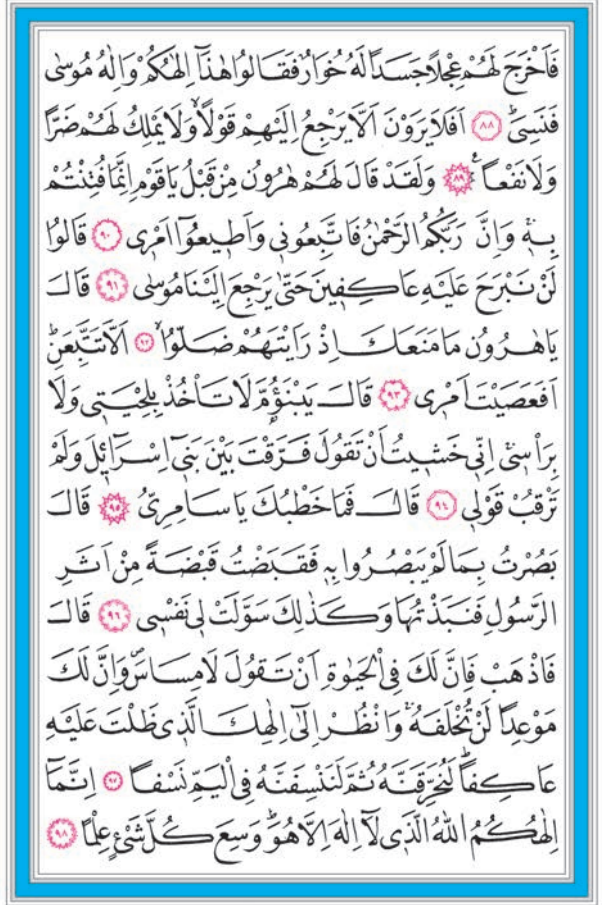 فَاَخْرَجَ لَهُمْ عِجْلًا جَسَدًا لَهُ خُوَارٌ فَقَالُوا هٰذَٓا اِلٰهُكُمْ وَاِلٰهُ مُوسٰى
فَنَسِيَۜ ﴿٨٨﴾ اَفَلَا يَرَوْنَ اَلَّا يَرْجِعُ اِلَيْهِمْ قَوْلًاۙ وَلَا يَمْلِكُ لَهُمْ ضَرًّا
وَلَا نَفْعًا۟ ﴿٨٩﴾ وَلَقَدْ قَالَ لَهُمْ هٰرُونُ مِنْ قَبْلُ يَا قَوْمِ اِنَّمَا فُتِنْتُمْ
بِه۪ۚ وَاِنَّ رَبَّكُمُ الرَّحْمٰنُ فَاتَّبِعُون۪ي وَاَط۪يعُٓوا اَمْر۪ي ﴿٩٠﴾ قَالُوا
لَنْ نَبْرَحَ عَلَيْهِ عَاكِف۪ينَ حَتّٰى يَرْجِعَ اِلَيْنَا مُوسٰى ﴿٩١﴾ قَالَ
يَا هٰرُونُ مَا مَنَعَكَ اِذْ رَاَيْتَهُمْ ضَلُّٓواۙ ﴿٩٢﴾ اَلَّا تَتَّبِعَنِۜ
اَفَعَصَيْتَ اَمْر۪ي ﴿٩٣﴾ قَالَ يَبْنَؤُ۬مَّ لَا تَأْخُذْ بِلِحْيَت۪ي وَلَا
بِرَأْس۪يۚ اِنّ۪ي خَش۪يتُ اَنْ تَقُولَ فَرَّقْتَ بَيْنَ بَن۪ٓي اِسْرَٓائ۪لَ وَلَمْ
تَرْقُبْ قَوْل۪ي ﴿٩٤﴾ قَالَ فَمَا خَطْبُكَ يَا سَامِرِيُّ ﴿٩٥﴾ قَالَ
بَصُرْتُ بِمَا لَمْ يَبْصُرُوا بِه۪ فَقَبَضْتُ قَبْضَةً مِنْ اَثَرِ
الرَّسُولِ فَنَبَذْتُهَا وَكَذٰلِكَ سَوَّلَتْ ل۪ي نَفْس۪ي ﴿٩٦﴾ قَالَ
فَاذْهَبْ فَاِنَّ لَكَ فِي الْحَيٰوةِ اَنْ تَقُولَ لَا مِسَاسَۖ وَاِنَّ لَكَ
مَوْعِدًا لَنْ تُخْلَفَهُۚ وَانْظُرْ اِلٰٓى اِلٰهِكَ الَّذ۪ي ظَلْتَ عَلَيْهِ
عَاكِفًاۜ لَنُحَرِّقَنَّهُ ثُمَّ لَنَنْسِفَنَّهُ فِي الْيَمِّ نَسْفًا ﴿٩٧﴾ اِنَّمَٓا
اِلٰهُكُمُ اللّٰهُ الَّذ۪ي لَٓا اِلٰهَ اِلَّا هُوَۜ وَسِعَ كُلَّ شَيْءٍ عِلْمًا ﴿٩٨﴾